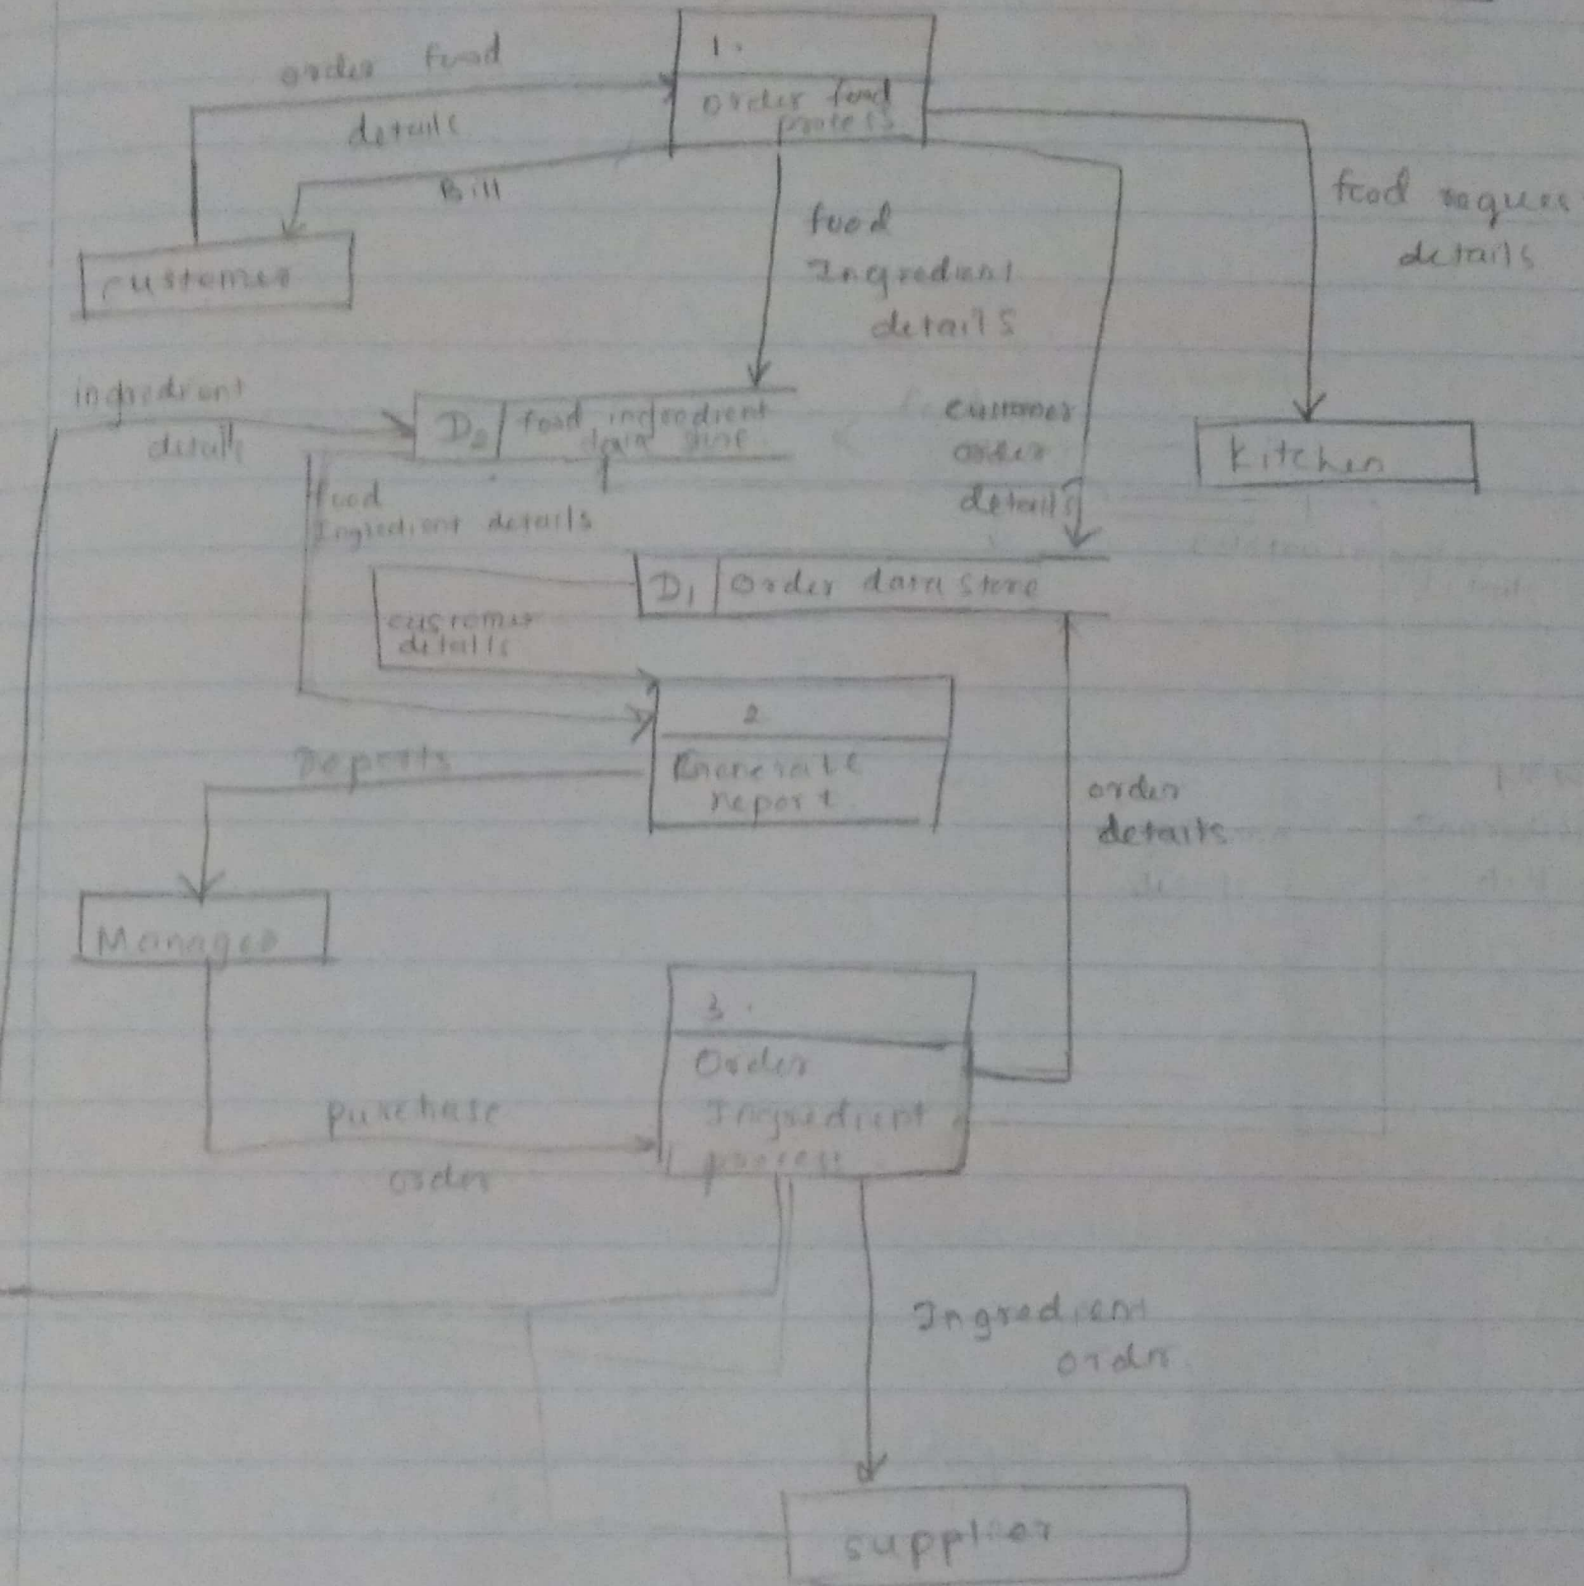 1.
order food
details
order food
process
Bill
customer
food
Ingredient
details
food reques
details
ingredient
details
D2 food ingredient
data store
customer
order
details
Kitchen
food
Ingredient details
D1 Order data store
customer
details
2
Generate
report
Reports
order
details
Manager
3.
Order
Ingredient
process
purchase
order
Ingredient
order
supplier